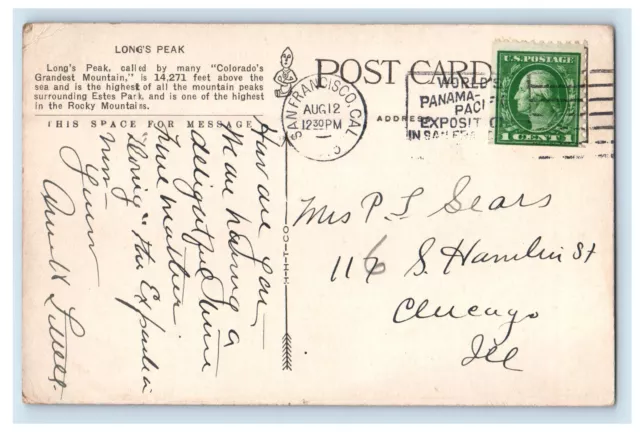 LONG'S PEAK
Long's Peak, called by many "Colorado's
Grandest Mountain," is 14,271 feet above the
sea and is the highest of all the mountain peaks
surrounding Estes Park, and is one of the highest
in the Rocky Mountains.
THIS SPACE FOR MESSAGE
POST CARD
ADDRESS
SAN FRANCISCO, CAL
AUG 12
12 30 PM
WORLD'S
PANAMA-
PACI
EXPOSIT ON
IN SAN FRA
U.S. POSTAGE
1 CENT 1
H-H-T-CO
How are you—
We are having a
delightful time
time matter
"Doing" the Expositio
now—
Yours
Mrs P S Sears
116 S. Hamlin St
Chicago
Ill